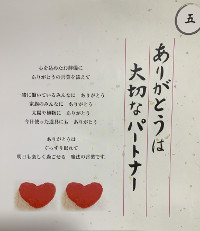 五
ありがとうは
大切なパートナー
心を込めたお掃除に
ありがとうの言葉を添えて
一緒に働いているみんなに　ありがとう
家族のみんなに　ありがとう
太陽や植物に　ありがとう
今日使った道具にも　ありがとう
ありがとうは
ぐっすり眠れて
明日も楽しく過ごせる　魔法の言葉です。